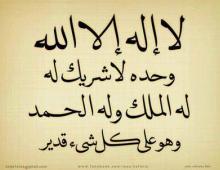 لا إله إلا الله
وحده لا شريك له
له الملك وله الحمد
وهو على كل شيء قدير